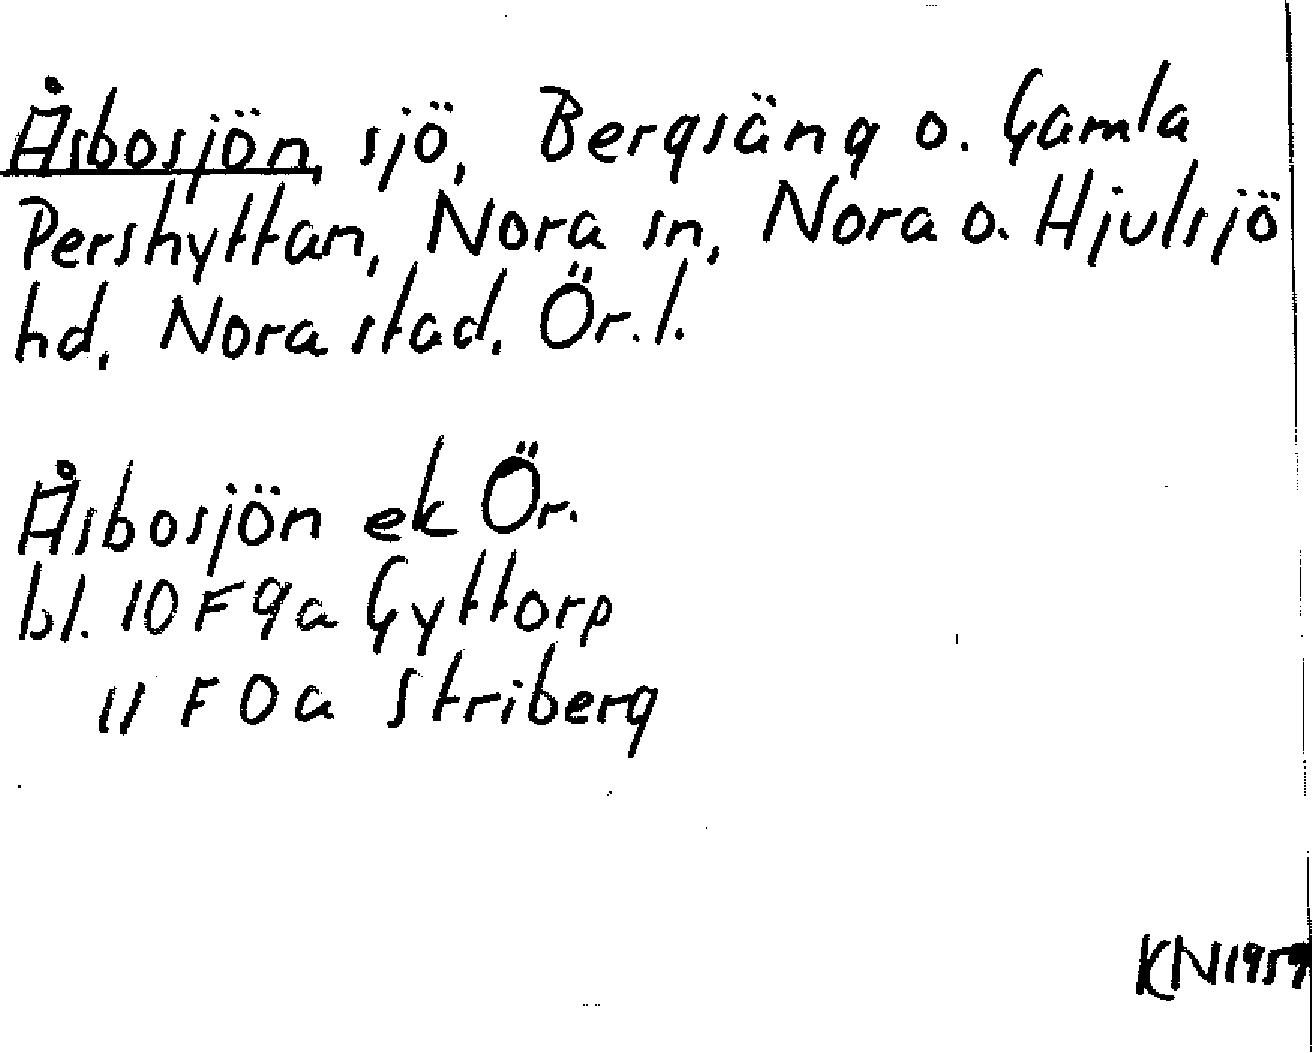 Åsbosjön, sjö, Bergsäng o. Gamla
Pershyttan, Nora sn, Nora o. Hjulsjö
hd, Nora stad, Ör. l.
Åsbosjön ek Ör.
bl. 10 F 9 a Gyttorp
11 F 0 a Striberg
KN 1959